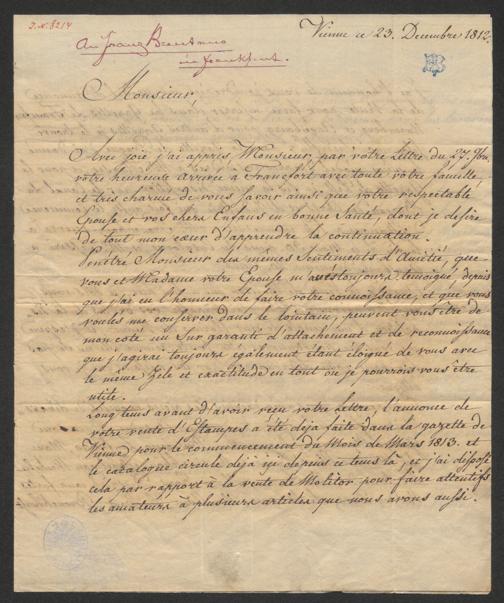 J.N. 8214
Vienne ce 23. Decembre 1812.
An Franz Brentano
in Frankfurt.
Monsieur,
Avec joie j'ai appris, Monsieur, par vôtre Lettre du 27. 9bre
vôtre heureuse Arrivée à Francfort avec toute vôtre famille,
et tres charmé de vous savoir ainsi que vôtre respectable
Epouse et vos chers Enfans en bonne Santé, dont je desire
de tout mon cœur d'apprendre la continuation.
Penêtré Monsieur des mêmes Sentiments d'Amitié, que
vous et Madame vôtre Epouse m'avés toujours temoigné, depuis
que j'ai eu l'honneur de faire votre connoissance, et que vous
voulés me conserver dans le lointain, peuvent vous être de
mon coté un Sur garanti d'attachement et de reconnoissance
que j'agirai toujours egalement étant eloigné de vous avec
le même Zele et exactitude en tout où je pourrois vous être
utile.
Long tems avant d'avoir reçu votre Lettre, l'annonce de
vôtre vente d'Estampes a été deja faite dans la gazette de
Vienne pour le commencement du Mois de Mars 1813. et
le catalogue circule déjà ici depuis ce tems là, et j'ai disposé
cela par rapport à la vente de Molitor pour faire attentifs
les amateurs à plusieurs articles que nous avons aussi.